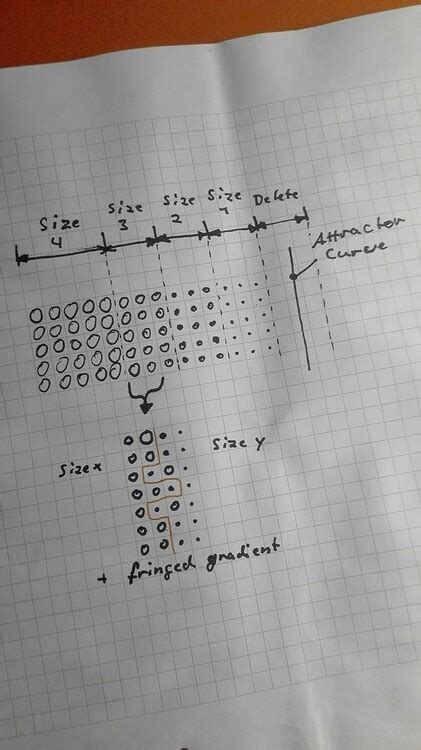 Size 4
Size 3
Size 2
Size 1
Delete
Attractor Curve
Size x
Size y
+ fringed gradient